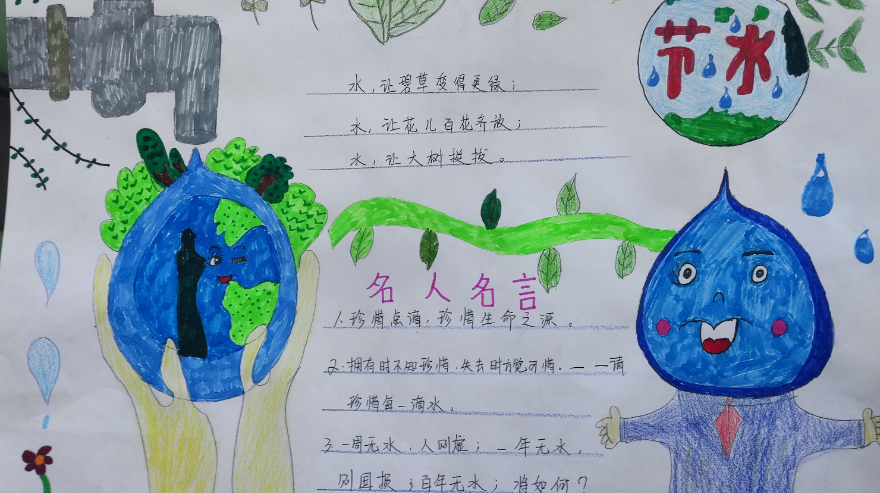 节水
水，让碧草变得更绿；
水，让花儿百花齐放；
水，让大树挺拔。
名人名言
1、珍惜点滴，珍惜生命之源。
2.拥有时不知珍惜，失去时方觉可惜。——请
珍惜每一滴水。
3.一周无水，人则虚；一年无水，
则国报；百年无水；将如何？